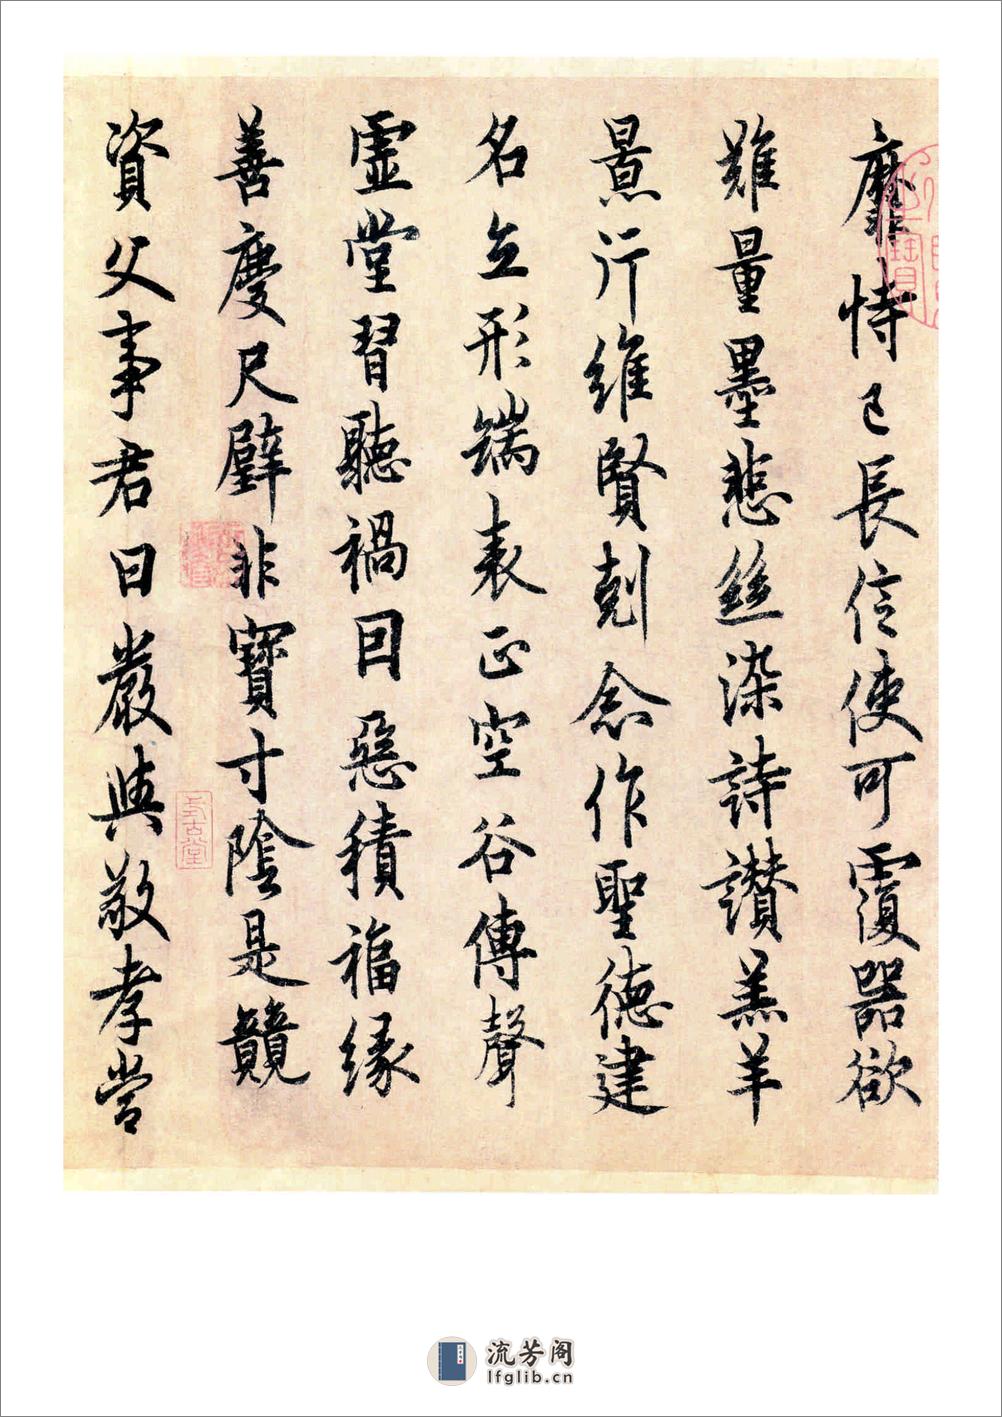 靡恃己長信使可覆器欲
難量墨悲絲染詩讃羔羊
景行維賢剋念作聖德建
名立形端表正空谷傳聲
虛堂習聽禍因惡積福緣
善慶尺璧非寶寸陰是競
資父事君曰嚴與敬孝當
流芳阁
lfglib.cn